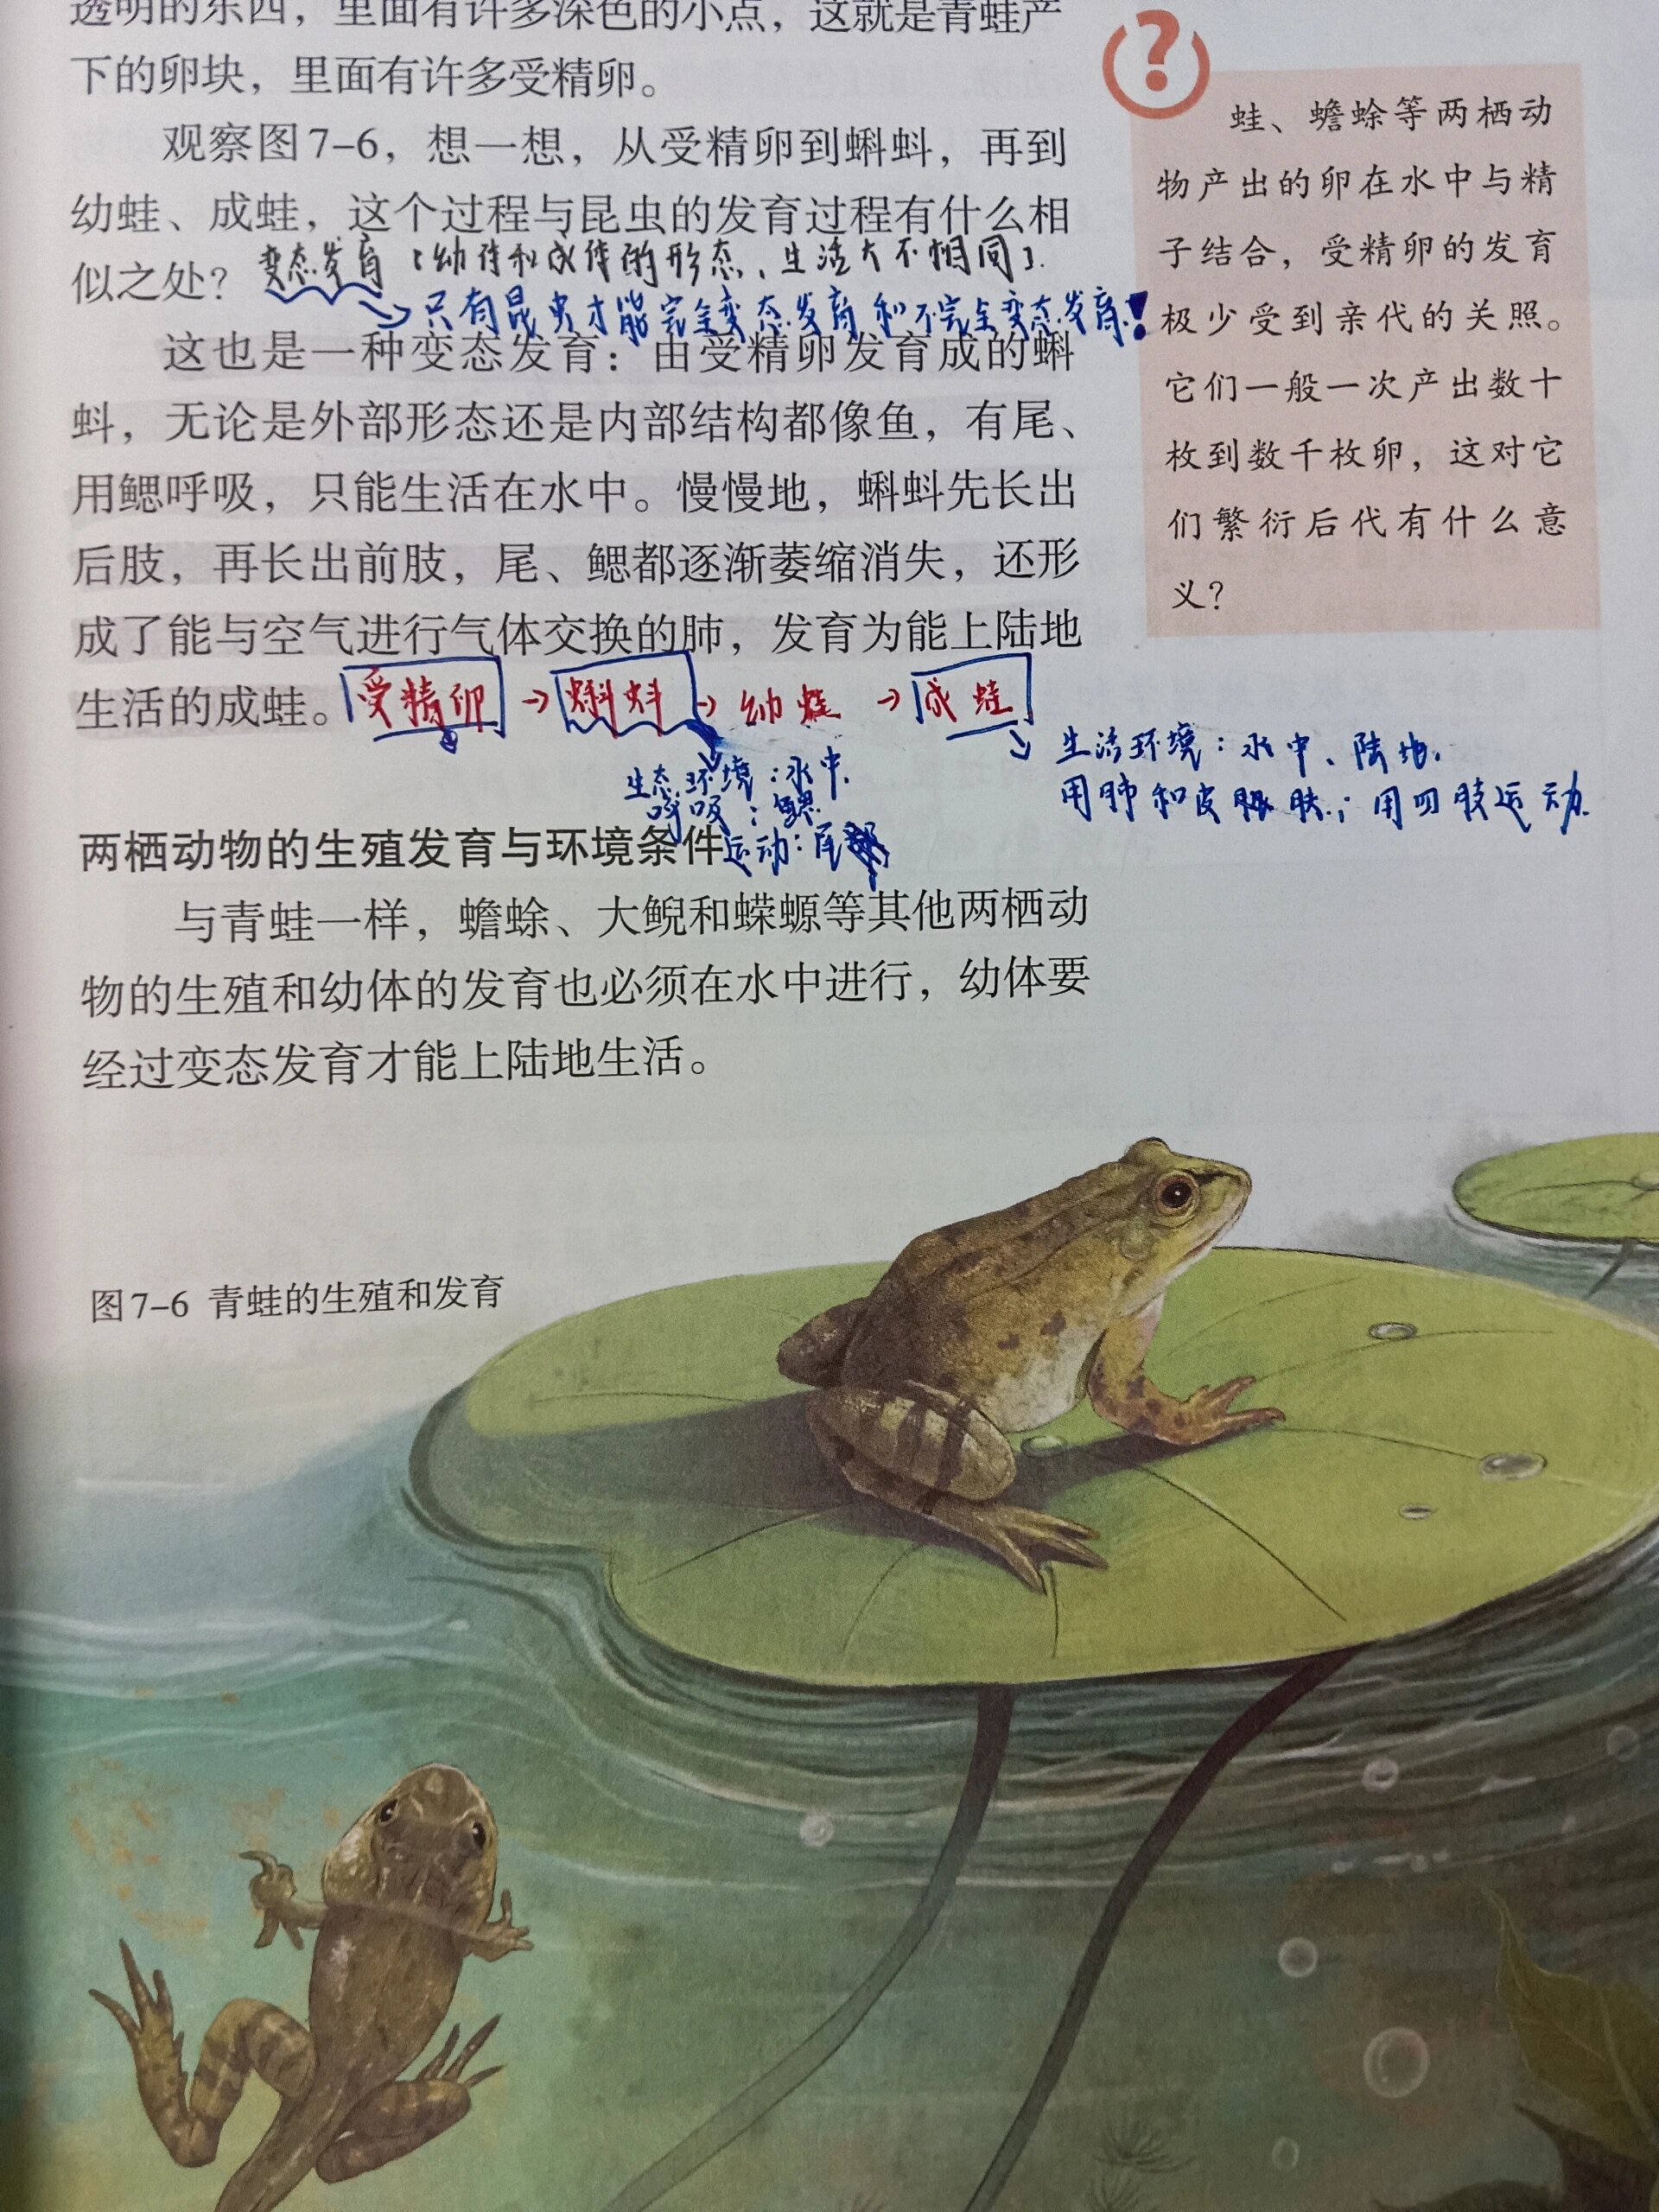 透明的东西，里面有许多深色的小点，这就是青蛙产
下的卵块，里面有许多受精卵。
观察图7-6，想一想，从受精卵到蝌蚪，再到
幼蛙、成蛙，这个过程与昆虫的发育过程有什么相
似之处？变态发育：幼体和成体的形态、生活大不相同。
只有昆虫才能完全变态发育和不完全变态发育！
这也是一种变态发育：由受精卵发育成的蝌
蚪，无论是外部形态还是内部结构都像鱼，有尾、
用鳃呼吸，只能生活在水中。慢慢地，蝌蚪先长出
后肢，再长出前肢，尾、鳃都逐渐萎缩消失，还形
成了能与空气进行气体交换的肺，发育为能上陆地
生活的成蛙。受精卵→蝌蚪→幼蛙→成蛙
生态环境：水中.
呼吸：鳃
运动：尾
生活环境：水中、陆地.
用肺和皮肤；用四肢运动.
两栖动物的生殖发育与环境条件
与青蛙一样，蟾蜍、大鲵和蝾螈等其他两栖动
物的生殖和幼体的发育也必须在水中进行，幼体要
经过变态发育才能上陆地生活。
?
蛙、蟾蜍等两栖动
物产出的卵在水中与精
子结合，受精卵的发育
极少受到亲代的关照。
它们一般一次产出数十
枚到数千枚卵，这对它
们繁衍后代有什么意
义？
图7-6 青蛙的生殖和发育